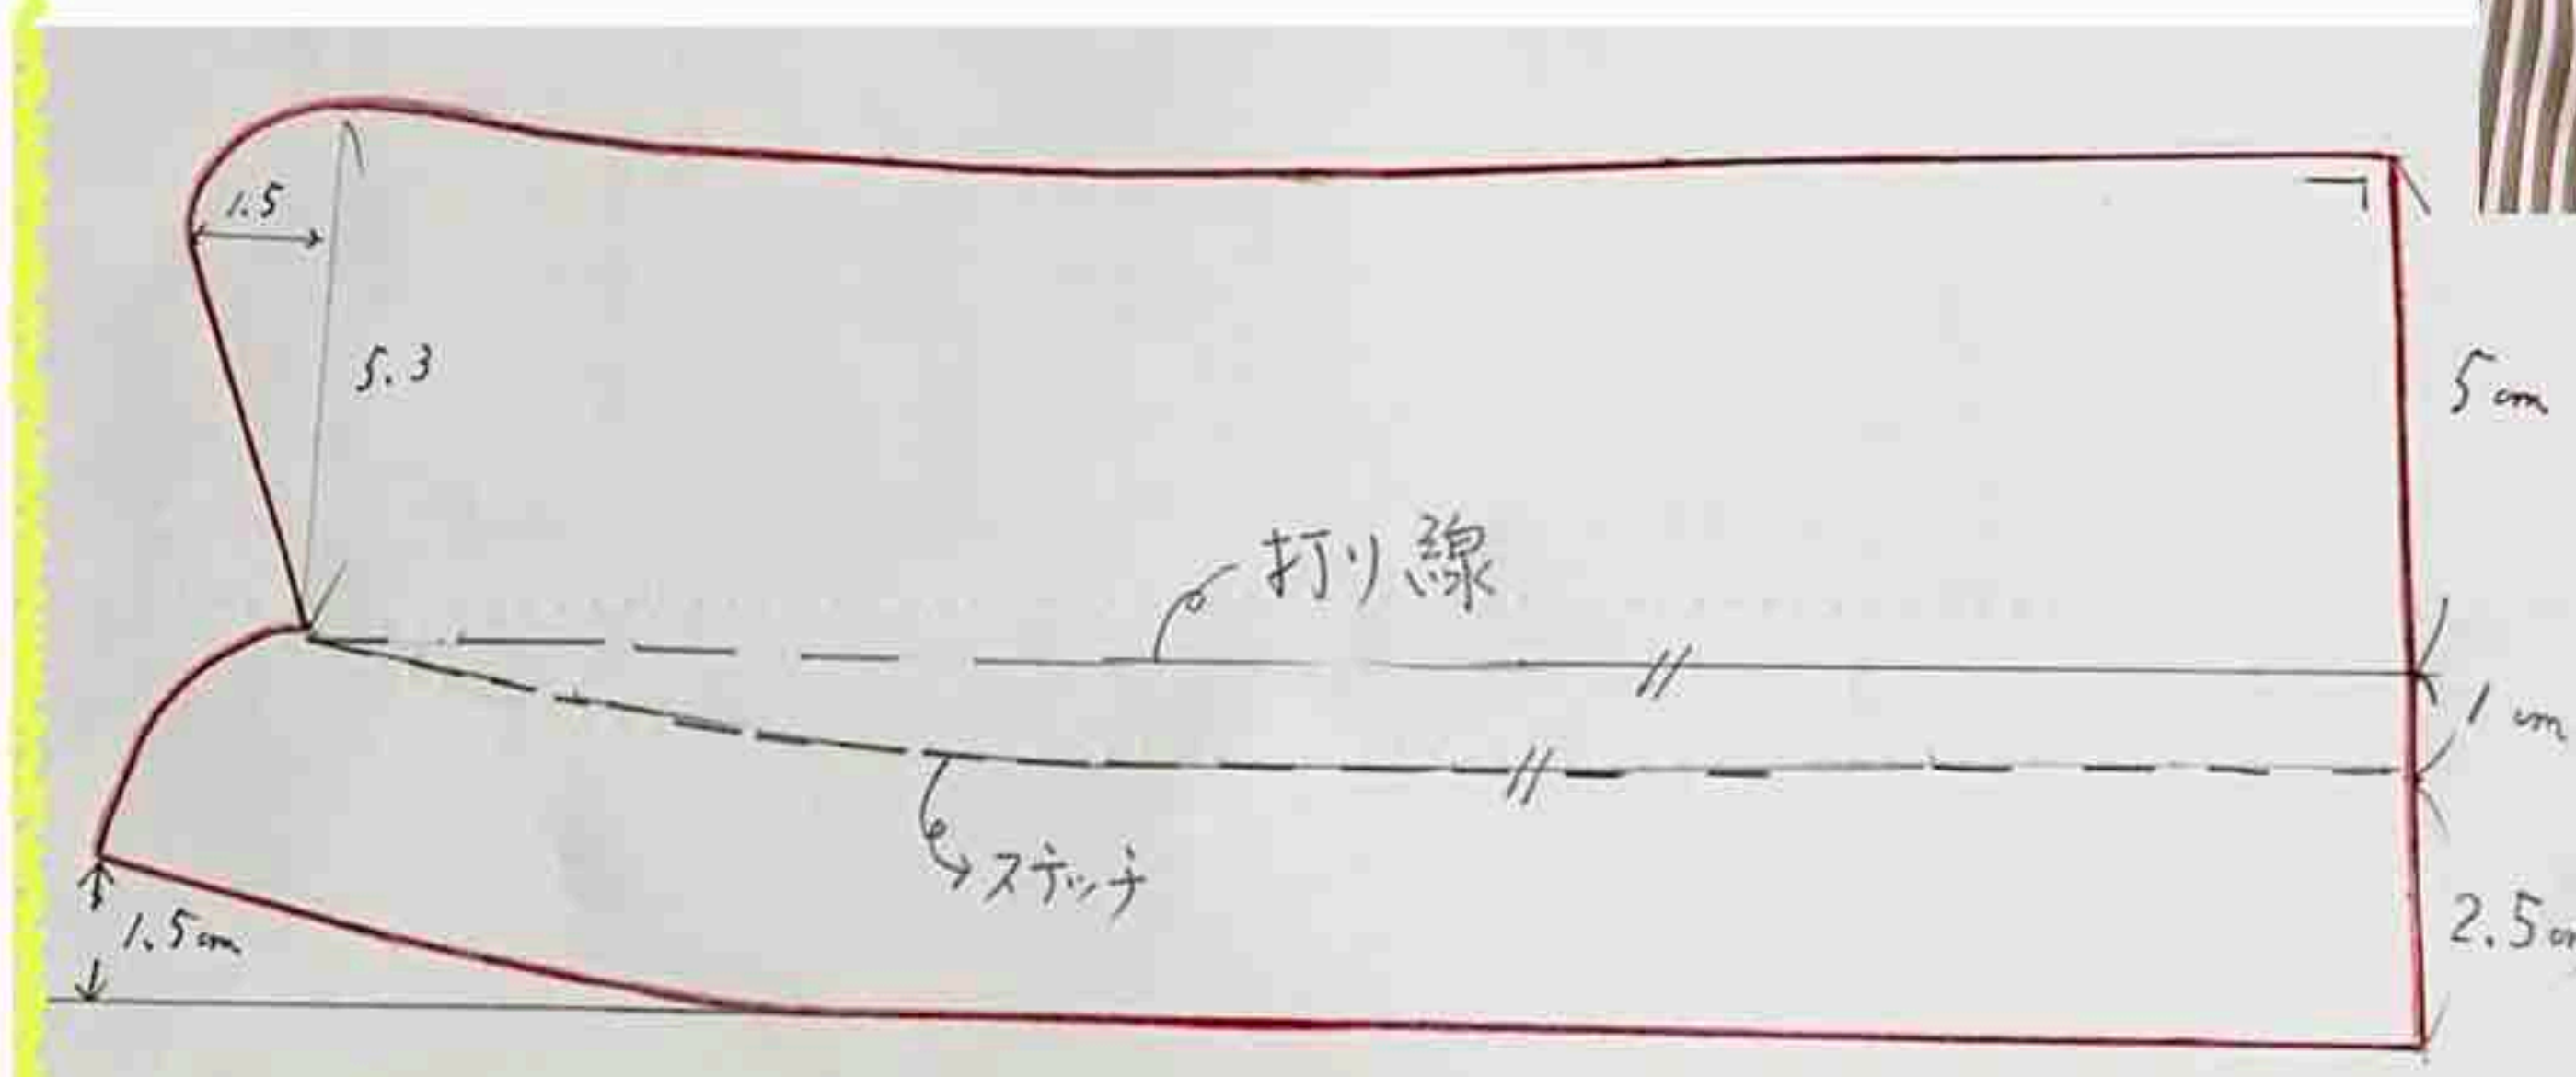 1.5
5.3
5cm
打り線
1cm
ステッチ
1.5cm
2.5c